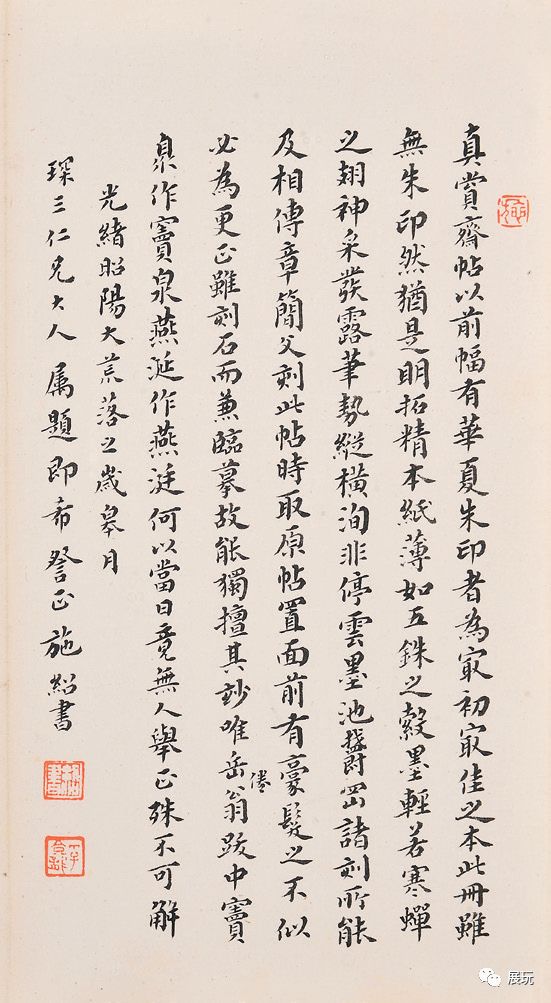 真賞齋帖以前幅有華夏朱印者為㝡初㝡佳之本此冊雖
無朱印然猶是明拓精本紙薄如五銖之縠墨輕若寒蟬
之翅神采發露筆勢縱橫洵非停雲墨池鬱岡諸刻所能
及相傳章簡父刻此帖時取原帖置面前有豪髮之不似
必為更正雖刻石而兼臨摹故能獨擅其妙唯岳倦翁跋中竇
臮作竇泉燕涎作燕涏何以當日竟無人舉正殊不可解
光緒昭陽大荒落之歲皋月
琛三仁兄大人屬題即希詧正施紹書
展玩